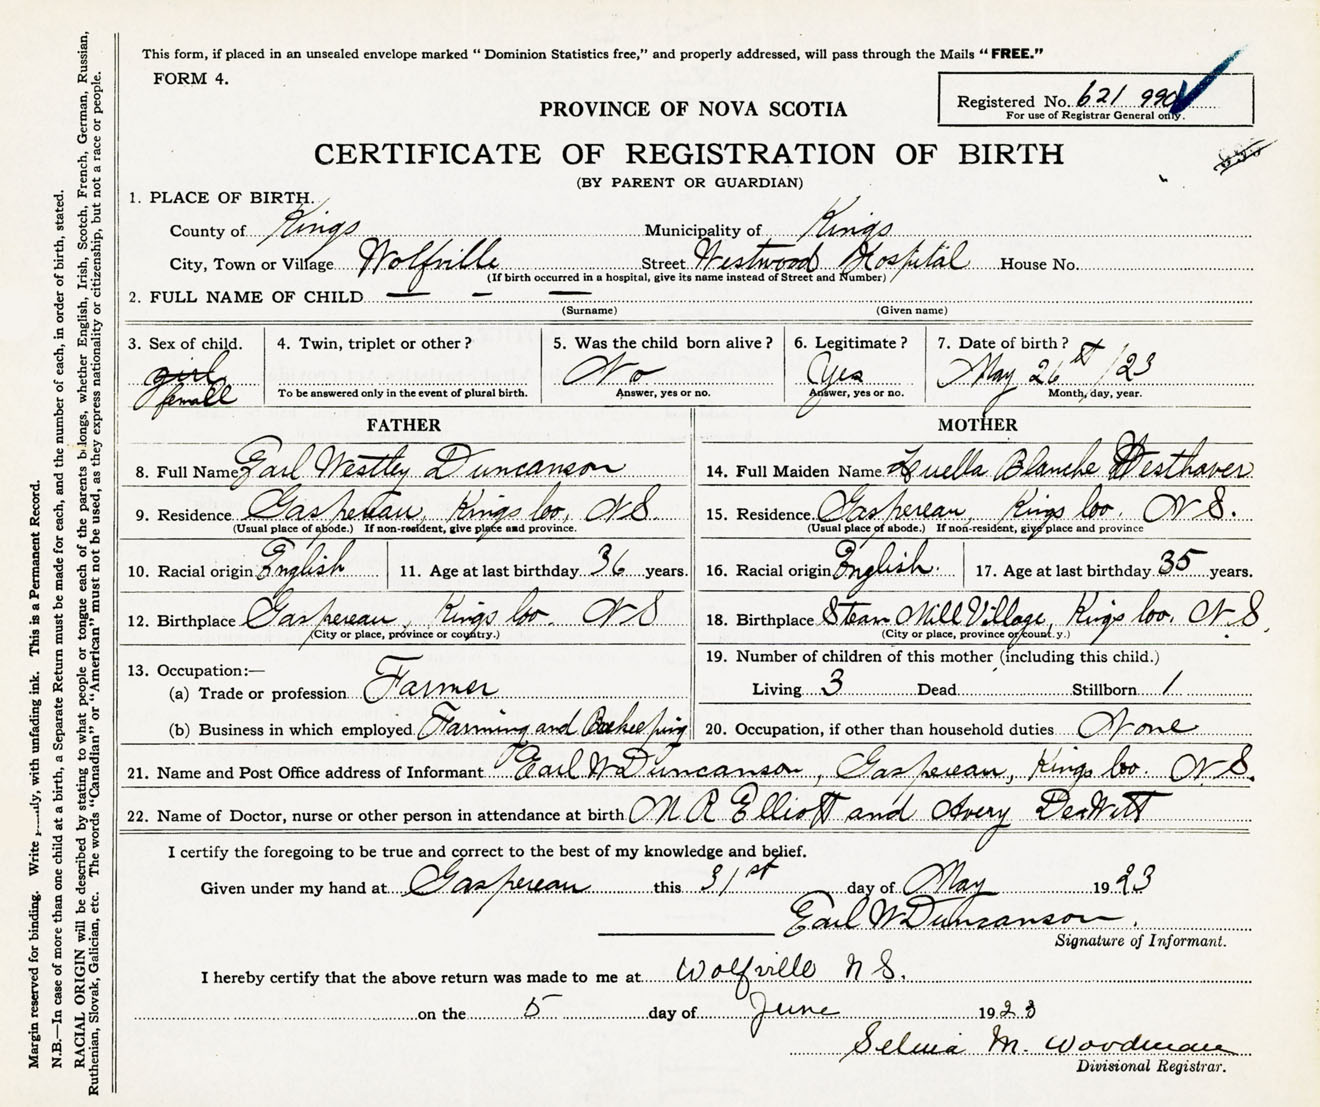 This form, if placed in an unsealed envelope marked "Dominion Statistics free," and properly addressed, will pass through the Mails "FREE."
FORM 4.
Registered No. 621 990
For use of Registrar General only.
PROVINCE OF NOVA SCOTIA
CERTIFICATE OF REGISTRATION OF BIRTH
(BY PARENT OR GUARDIAN)
1. PLACE OF BIRTH.
County of Kings Municipality of Kings
City, Town or Village Wolfville Street Westwood Hospital House No.
(If birth occurred in a hospital, give its name instead of Street and Number)
2. FULL NAME OF CHILD — - —
(Surname) (Given name)
3. Sex of child. 4. Twin, triplet or other? 5. Was the child born alive? 6. Legitimate? 7. Date of birth?
girl No Yes May 26st /23
femall To be answered only in the event of plural birth. Answer, yes or no. Answer, yes or no. Month, day, year.
FATHER MOTHER
8. Full Name Earl Westley Duncanson 14. Full Maiden Name Luella Blanche Westhaver
9. Residence Gaspereau, Kings Coo, NS. 15. Residence Gaspereau, Kings Coo. N S.
(Usual place of abode.) If non-resident, give place and province. (Usual place of abode.) If non-resident, give place and province
10. Racial origin English 11. Age at last birthday 36 years. 16. Racial origin English. 17. Age at last birthday 35 years.
12. Birthplace Gaspereau, Kings Coo. N S 18. Birthplace Steam Mill Village, Kings Coo. N S,
(City or place, province or country.) (City or place, province or count.y.)
13. Occupation:— 19. Number of children of this mother (including this child.)
(a) Trade or profession Farmer Living 3 Dead Stillborn 1
(b) Business in which employed Farming and Beekeeping 20. Occupation, if other than household duties None
21. Name and Post Office address of Informant Earl W Duncanson, Gaspereau, Kings Coo. N S.
22. Name of Doctor, nurse or other person in attendance at birth M R Elliott and Avery DeWitt
I certify the foregoing to be true and correct to the best of my knowledge and belief.
Given under my hand at Gaspereau this 31st day of May 1923
Earl W Duncanson.
Signature of Informant.
I hereby certify that the above return was made to me at Wolfville N S.
on the 5 day of June 1923
Selina M. Woodman
Divisional Registrar.
Margin reserved for binding. Write, with unfading ink. This is a Permanent Record.
N.B.—In case of more than one child at a birth, a Separate Return must be made for each, and the number of each, in order of birth, stated.
RACIAL ORIGIN will be described by stating to what people or tongue each of the parents belongs, whether English, Irish, Scotch, French, German, Russian,
Ruthenian, Slovak, Galician, etc. The words "Canadian" or "American" must not be used, as they express nationality or citizenship, but not a race or people.